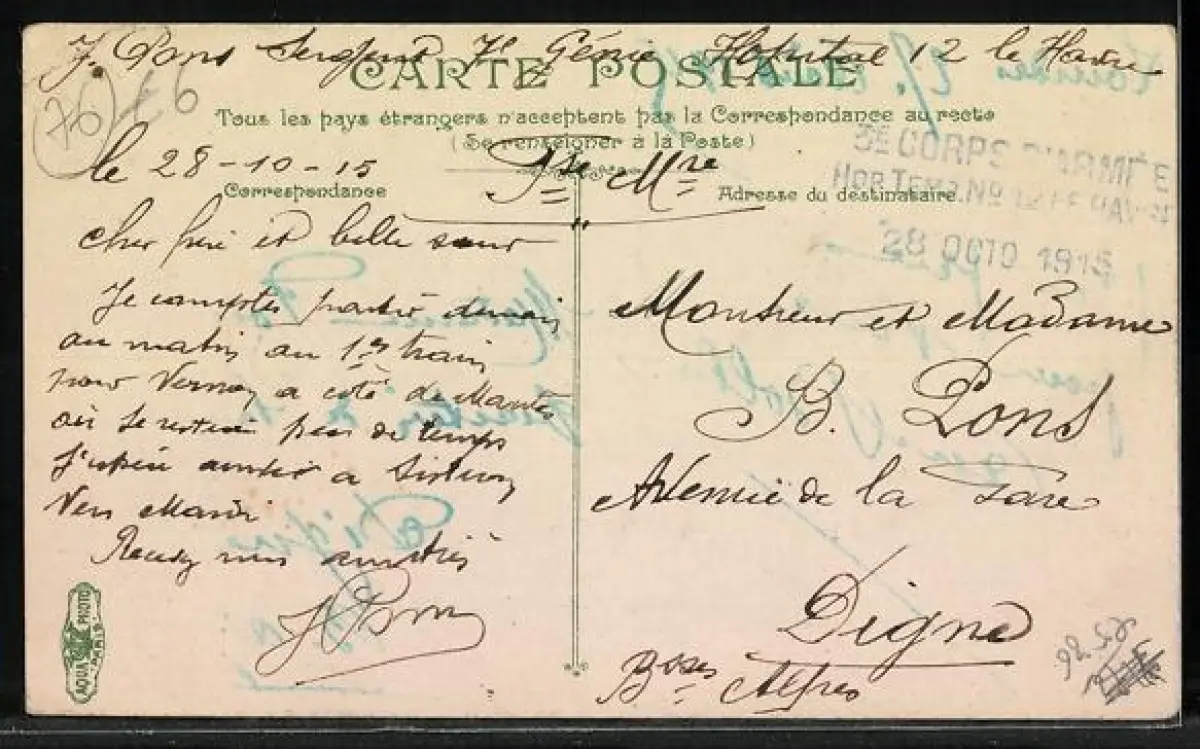 J. Pons Sergent 7e Génie Hopital 12 le Havre
CARTE POSTALE
Tous les pays étrangers n'acceptent pas la Correspondance au recto
(Se renseigner à la Poste)
le 28-10-15
Correspondance
Fse Mre
Adresse du destinataire.
3E CORPS D'ARMÉE
HOP. TEMP. No 12 LE HAVRE
28 OCTO 1915
cher frère et belle sœur
Je comptes partir demain
au matin au 1er train
pour Vernon a coté de Mantes
ou je resterai peu de temps
J'espère arriver a Sisteron
Vers Mardi
Recevez mes amitiés
J Pons
Monsieur et Madame
B. Pons
Avenue de la Gare
Digne
Bsses Alpes
AQUA PHOTO
PARIS
(76)